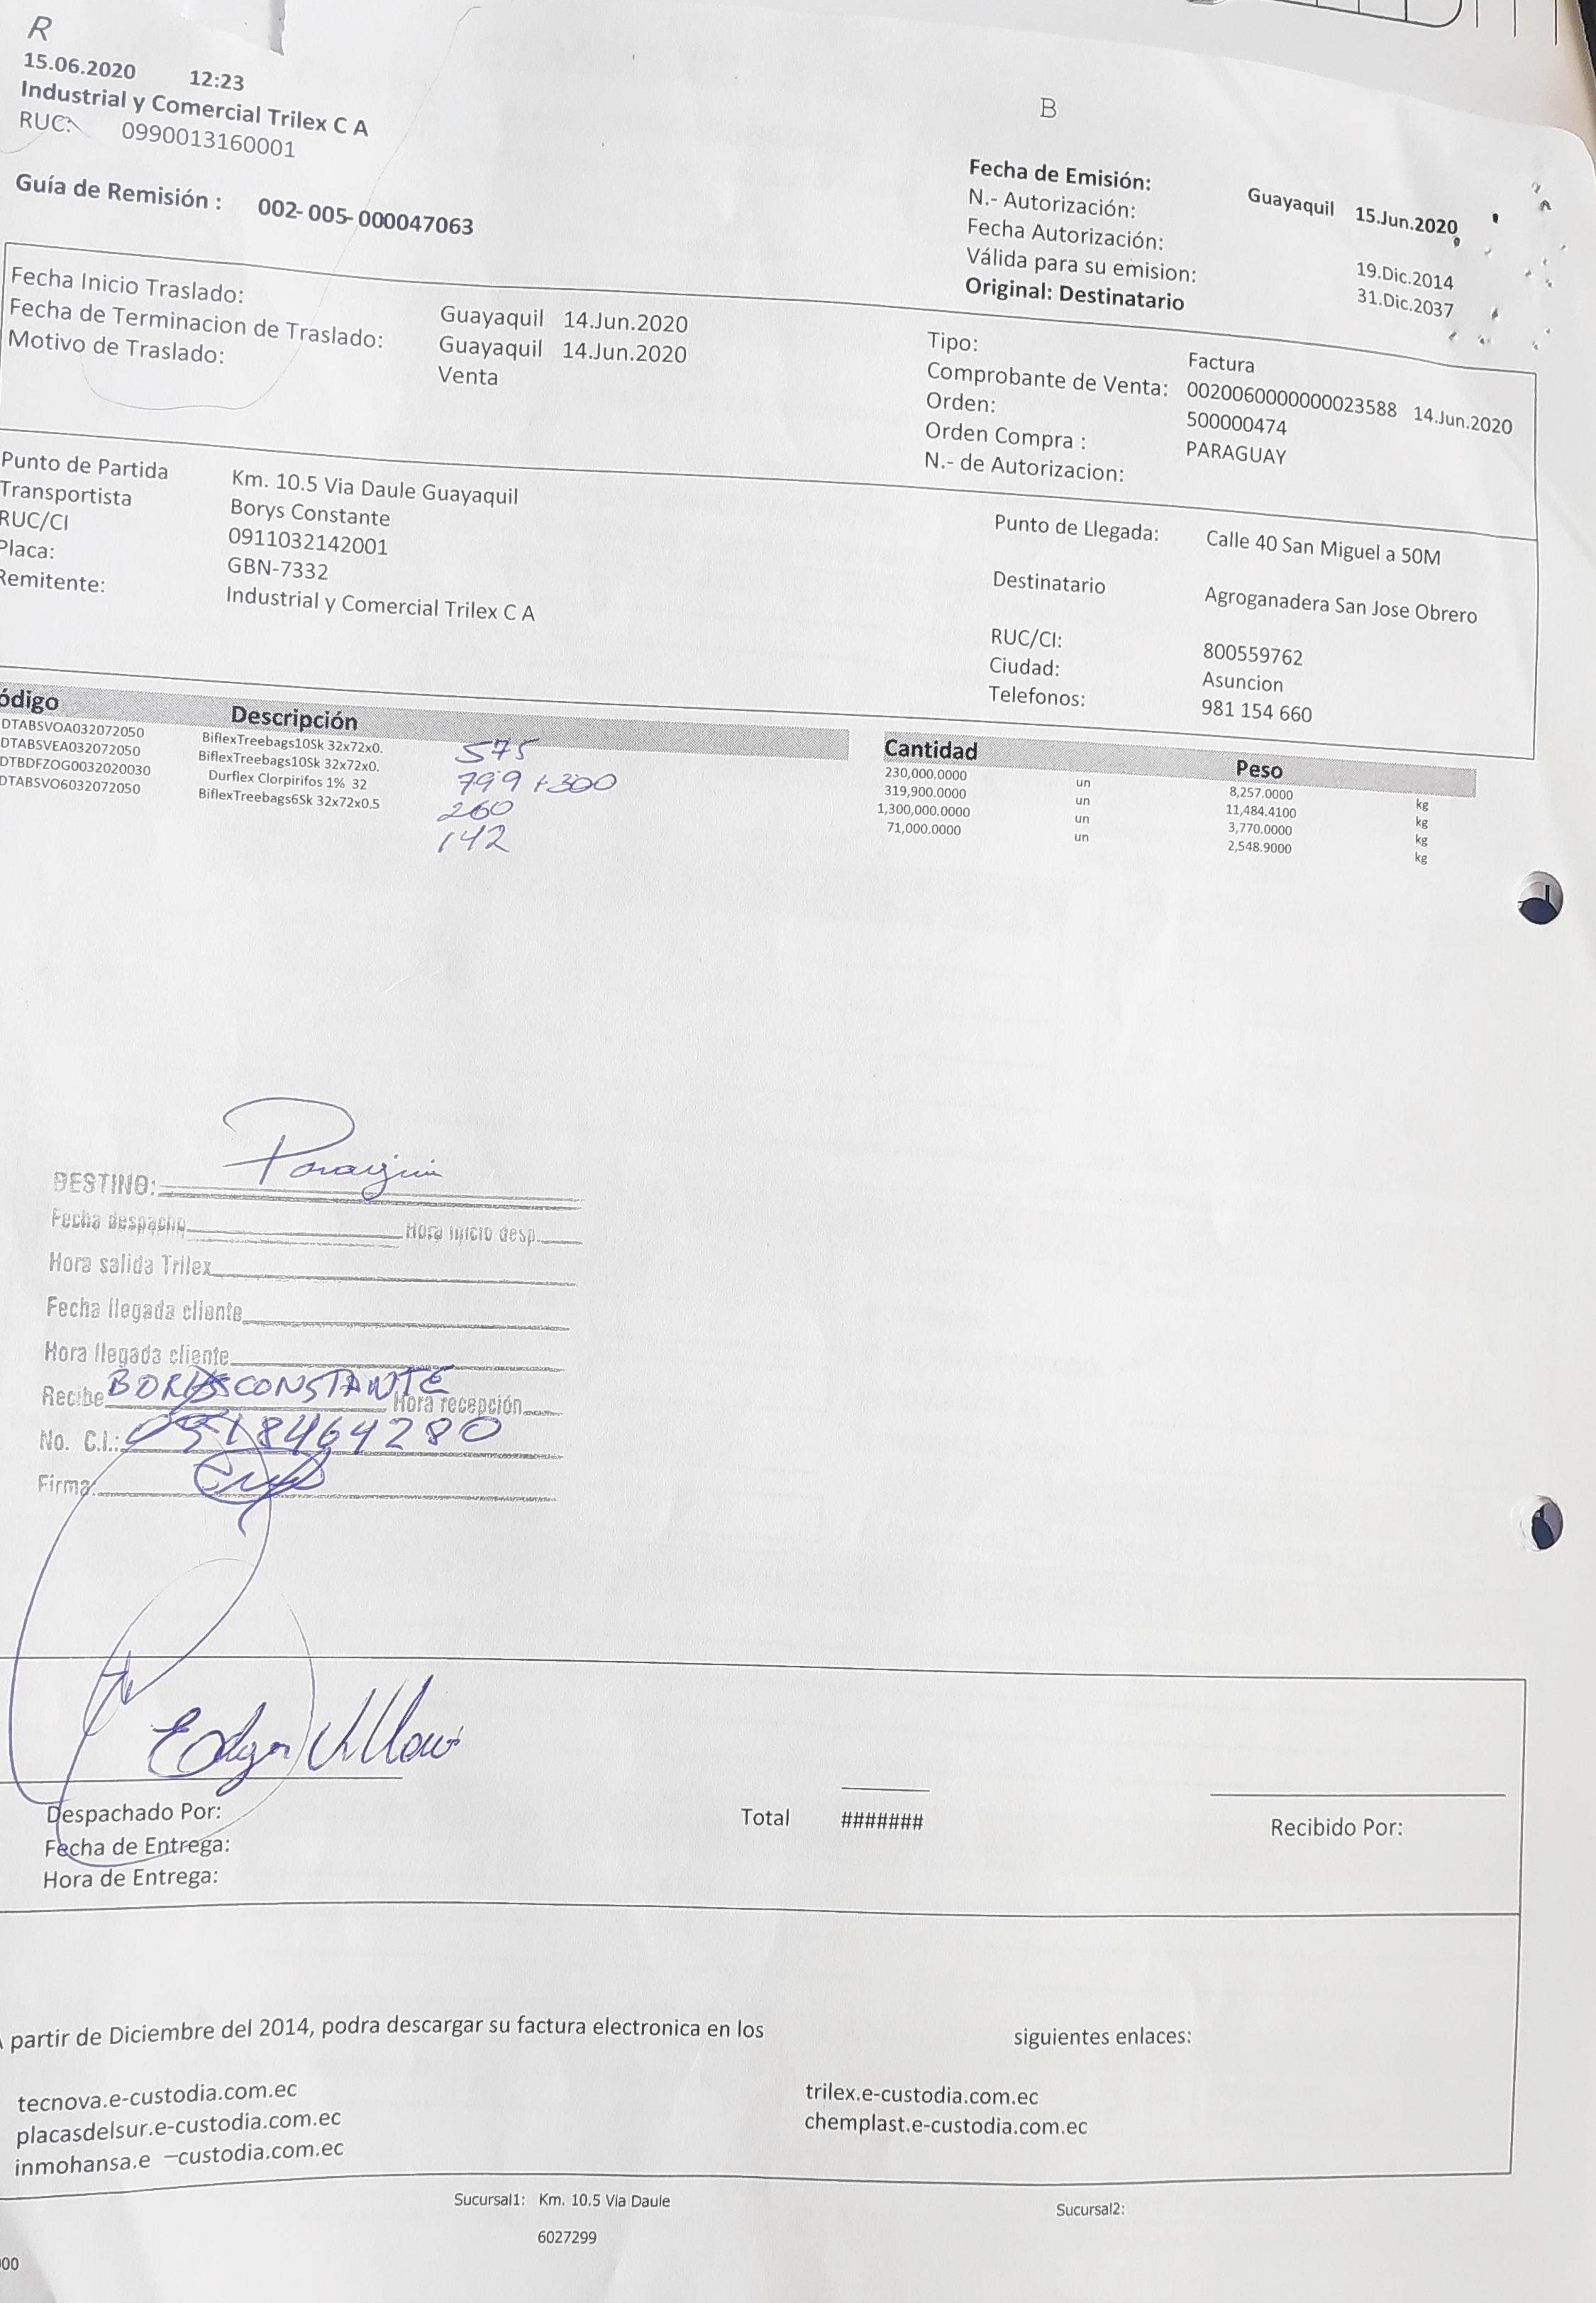 R
15.06.2020 12:23
Industrial y Comercial Trilex C A
RUC: 0990013160001
Guía de Remisión : 002-005-000047063
B
Fecha de Emisión: Guayaquil 15.Jun.2020
N.- Autorización:
Fecha Autorización: 19.Dic.2014
Válida para su emision: 31.Dic.2037
Original: Destinatario
Fecha Inicio Traslado: Guayaquil 14.Jun.2020
Fecha de Terminacion de Traslado: Guayaquil 14.Jun.2020
Motivo de Traslado: Venta
Tipo: Factura
Comprobante de Venta: 0020060000000023588 14.Jun.2020
Orden: 500000474
Orden Compra : PARAGUAY
N.- de Autorizacion:
Punto de Partida Km. 10.5 Via Daule Guayaquil
Transportista Borys Constante
RUC/CI 0911032142001
Placa: GBN-7332
Remitente: Industrial y Comercial Trilex C A
Punto de Llegada: Calle 40 San Miguel a 50M
Destinatario Agroganadera San Jose Obrero
RUC/CI: 800559762
Ciudad: Asuncion
Telefonos: 981 154 660
ódigo Descripción Cantidad Peso
DTABSVOA032072050 BiflexTreebags10Sk 32x72x0. 575 230,000.0000 un 8,257.0000 kg
DTABSVEA032072050 BiflexTreebags10Sk 32x72x0. 799 + 300 319,900.0000 un 11,484.4100 kg
DTBDFZOG0032020030 Durflex Clorpirifos 1% 32 260 1,300,000.0000 un 3,770.0000 kg
DTABSVO6032072050 BiflexTreebags6Sk 32x72x0.5 142 71,000.0000 un 2,548.9000 kg
DESTINO:
Fecha despacho Hora inicio desp.
Hora salida Trilex
Fecha llegada cliente
Hora llegada cliente
Recibe BORYS CONSTANTE Hora recepción
No. C.I.: 0918464280
Firma:
Despachado Por: Total ####### Recibido Por:
Fecha de Entrega:
Hora de Entrega:
A partir de Diciembre del 2014, podra descargar su factura electronica en los siguientes enlaces:
tecnova.e-custodia.com.ec trilex.e-custodia.com.ec
placasdelsur.e-custodia.com.ec chemplast.e-custodia.com.ec
inmohansa.e –custodia.com.ec
Sucursal1: Km. 10.5 Via Daule Sucursal2:
6027299
000